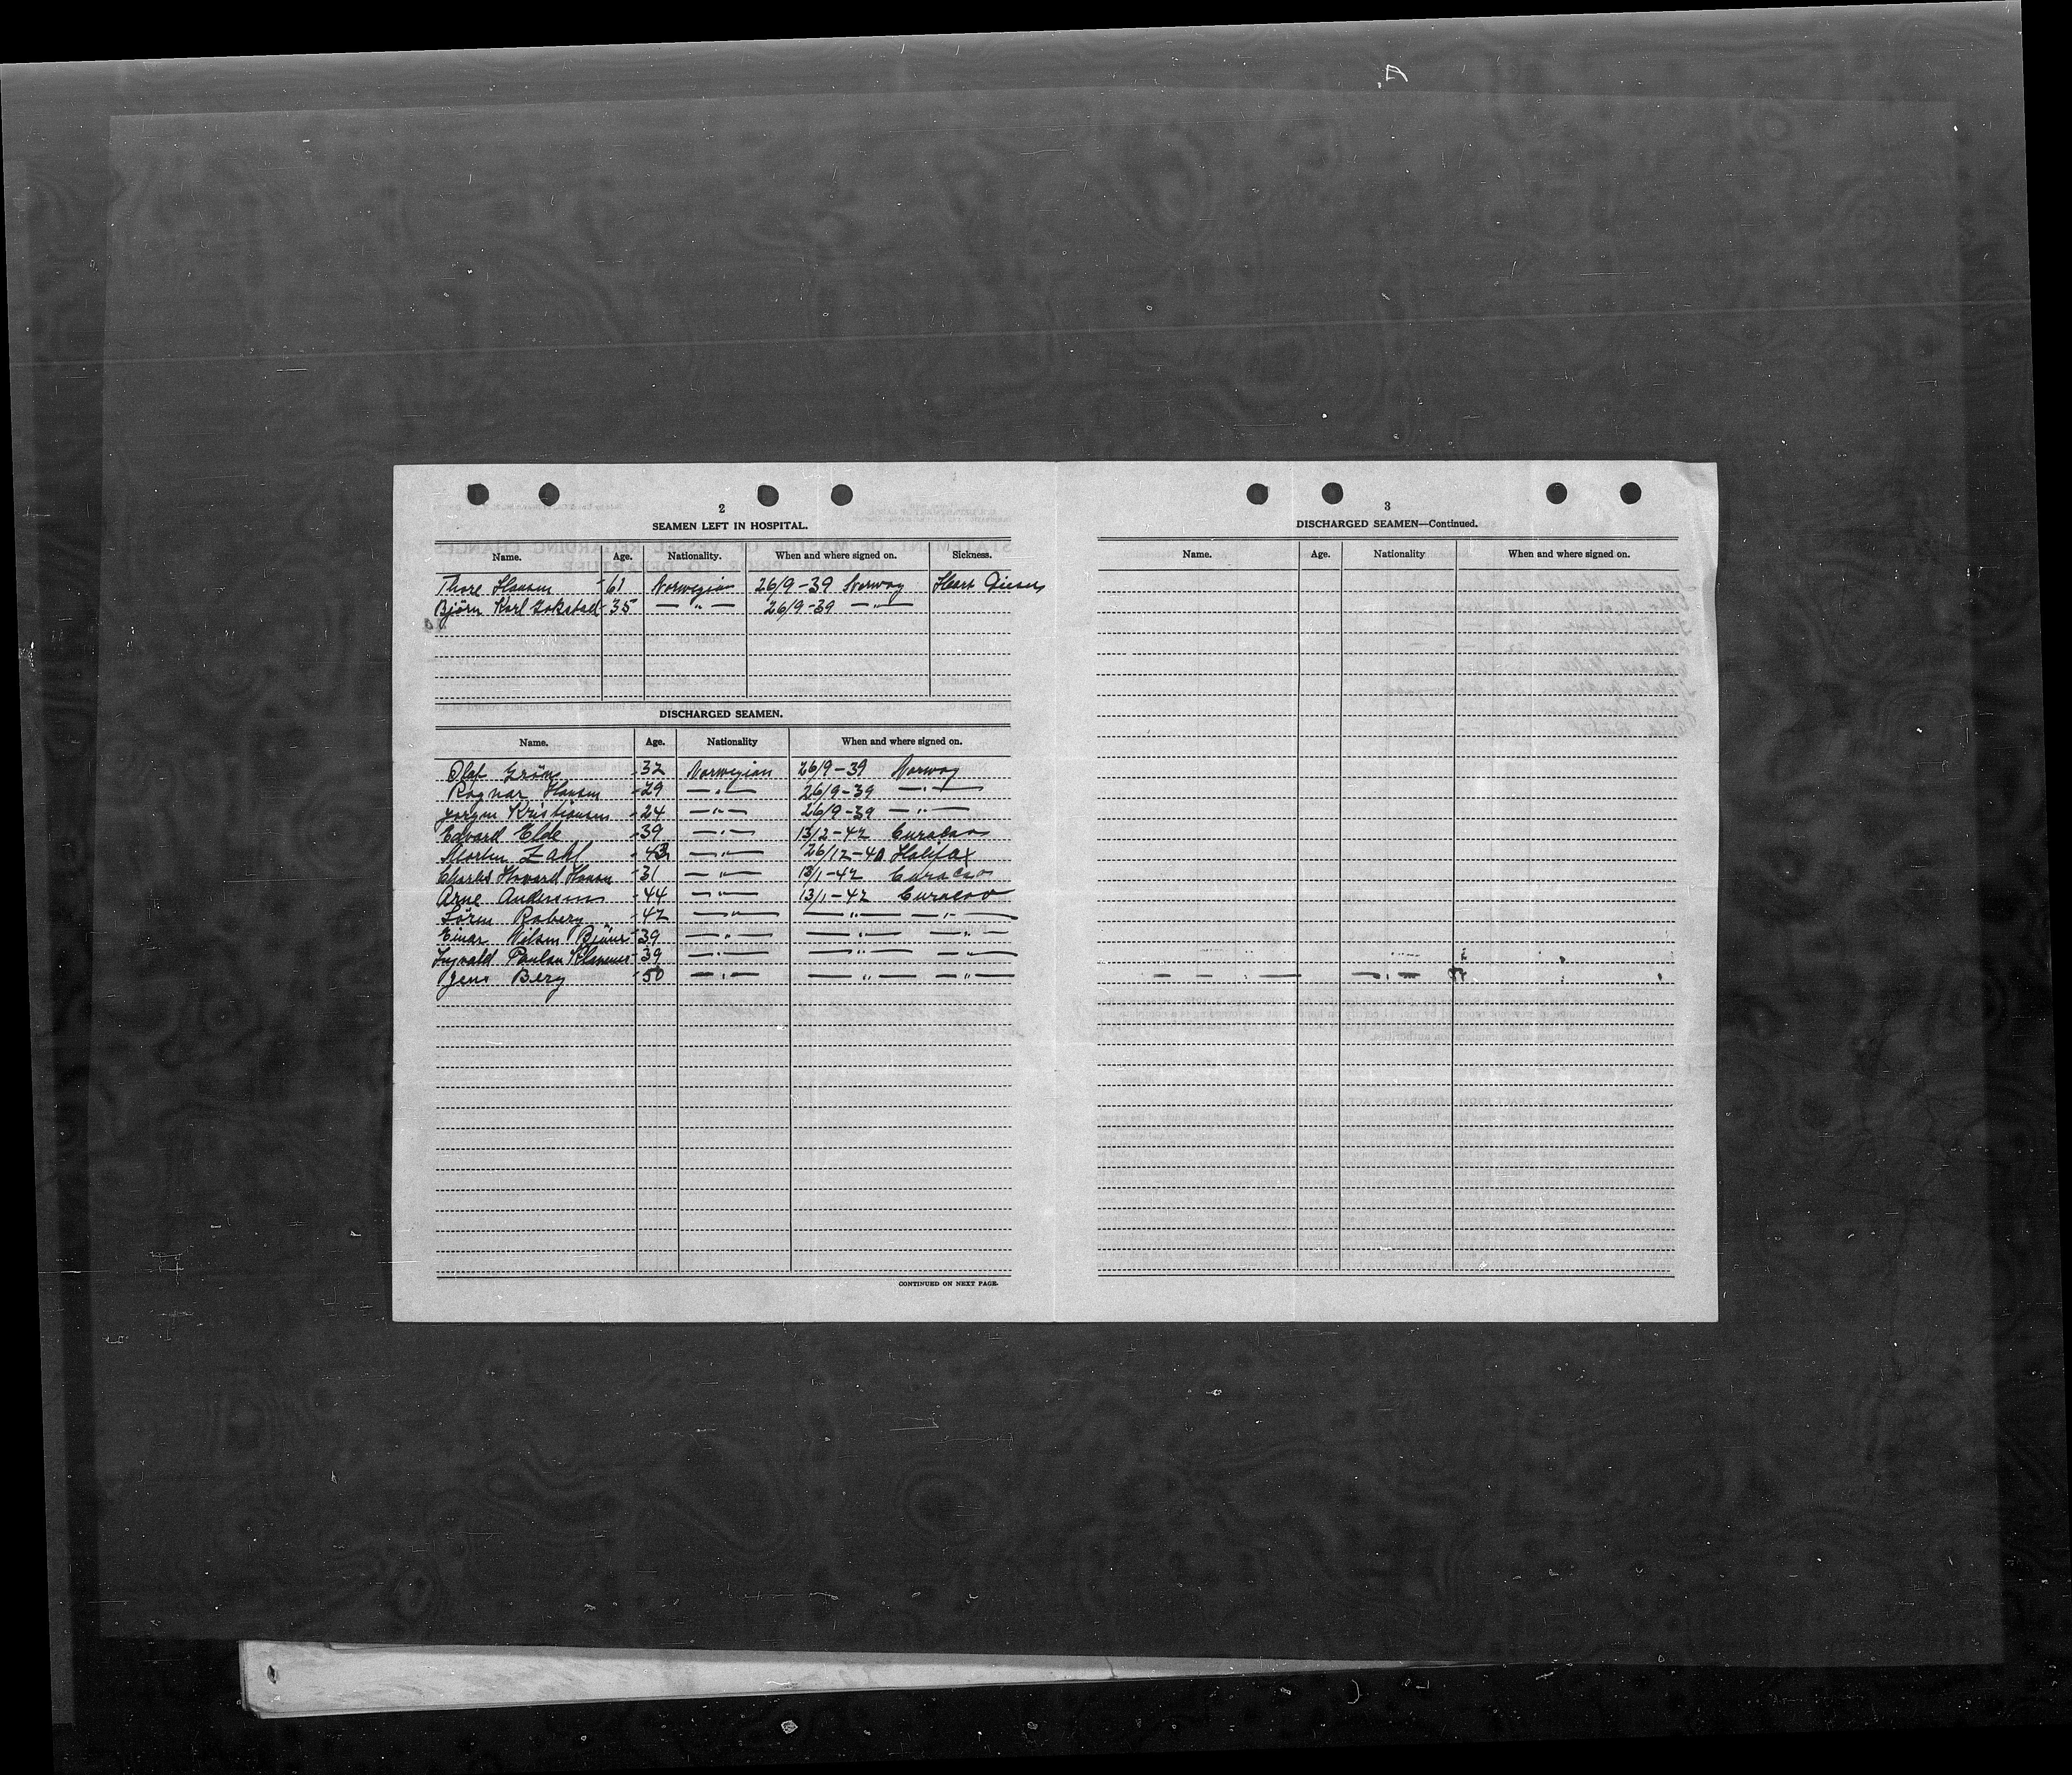 2
SEAMEN LEFT IN HOSPITAL.
Name. Age. Nationality. When and where signed on. Sickness.
Thore Hansen -61 Norwegian 26/9-39 Norway Heart
Björn Karl -35 —"— 26/9-39 —"—
DISCHARGED SEAMEN.
Name. Age. Nationality When and where signed on.
Olaf Grön -32 Norwegian 26/9-39 Norway
Ragnar Hansen -29 —"— 26/9-39 —"—
Jørgen Kristiansen -24 —"— 26/9-39 —"—
Edvard Elde -39 —"— 13/2-42 Curacao
Morten Zahl -43 —"— 26/12-40 Halifax
Charles Howard Hansen -31 —"— 13/1-42 Curacao
Arne Andersen -44 —"— 13/1-42 Curacao
Sören Roberg -42 —"— —"— —"—
Einar Nilsen -39 —"— —"— —"—
Ingvald Paulsen -39 —"— —"— —"—
Jens Berg -50 —"— —"— —"—
CONTINUED ON NEXT PAGE.
3
DISCHARGED SEAMEN—Continued.
Name. Age. Nationality When and where signed on.